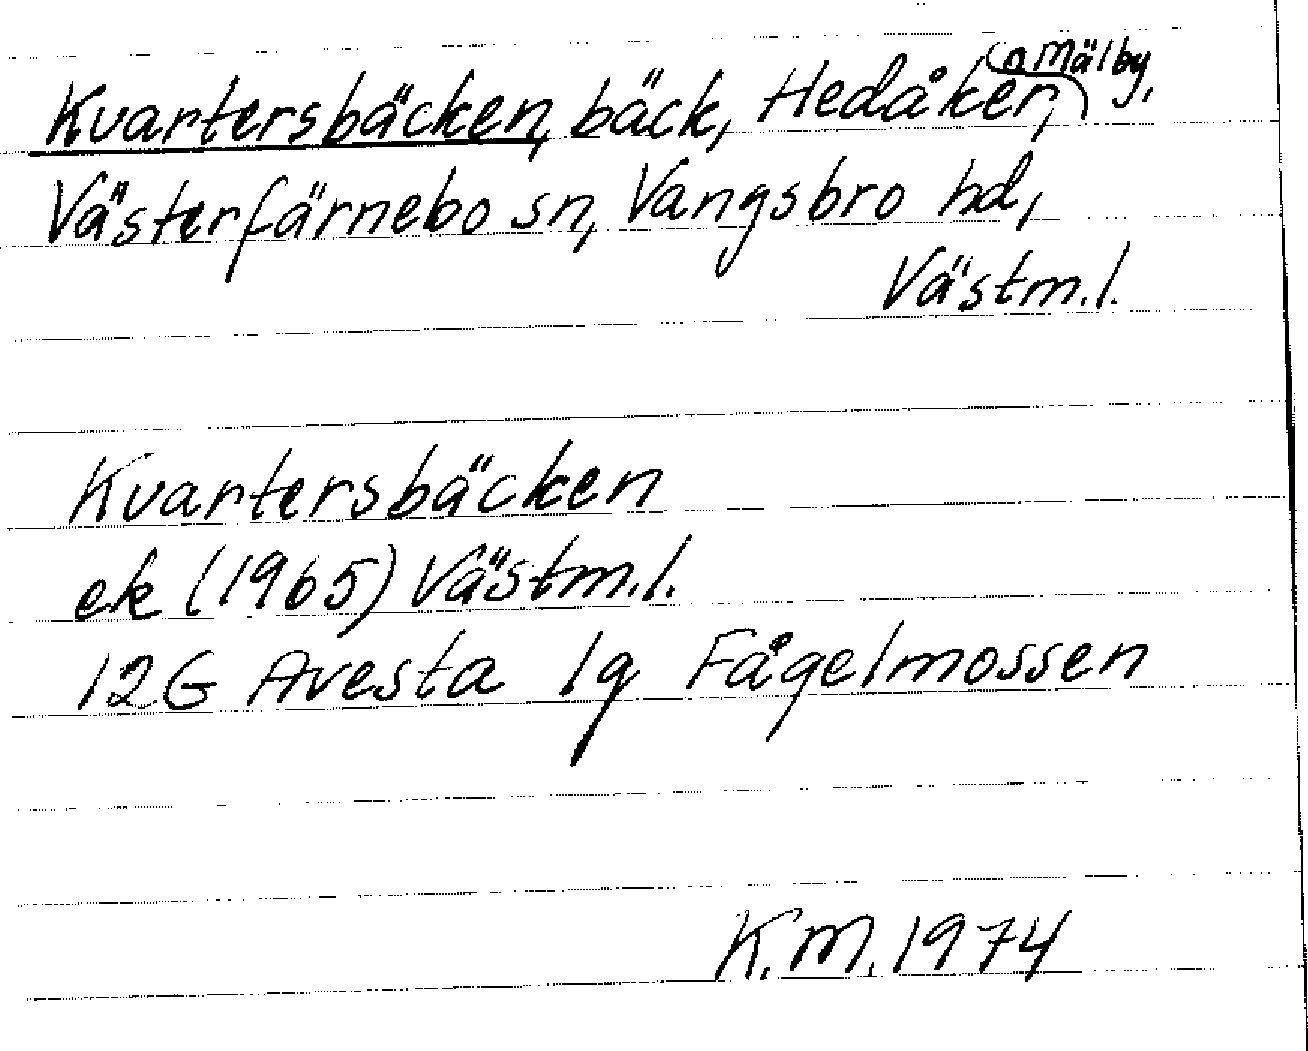 Kvartersbäcken, bäck, Hedåker, o Mälby,
Västerfärnebo sn, Vangsbro hd,
Västm.l.
Kvartersbäcken
ek (1965) Västm.l.
12G Avesta 1g Fågelmossen
K.M. 1974